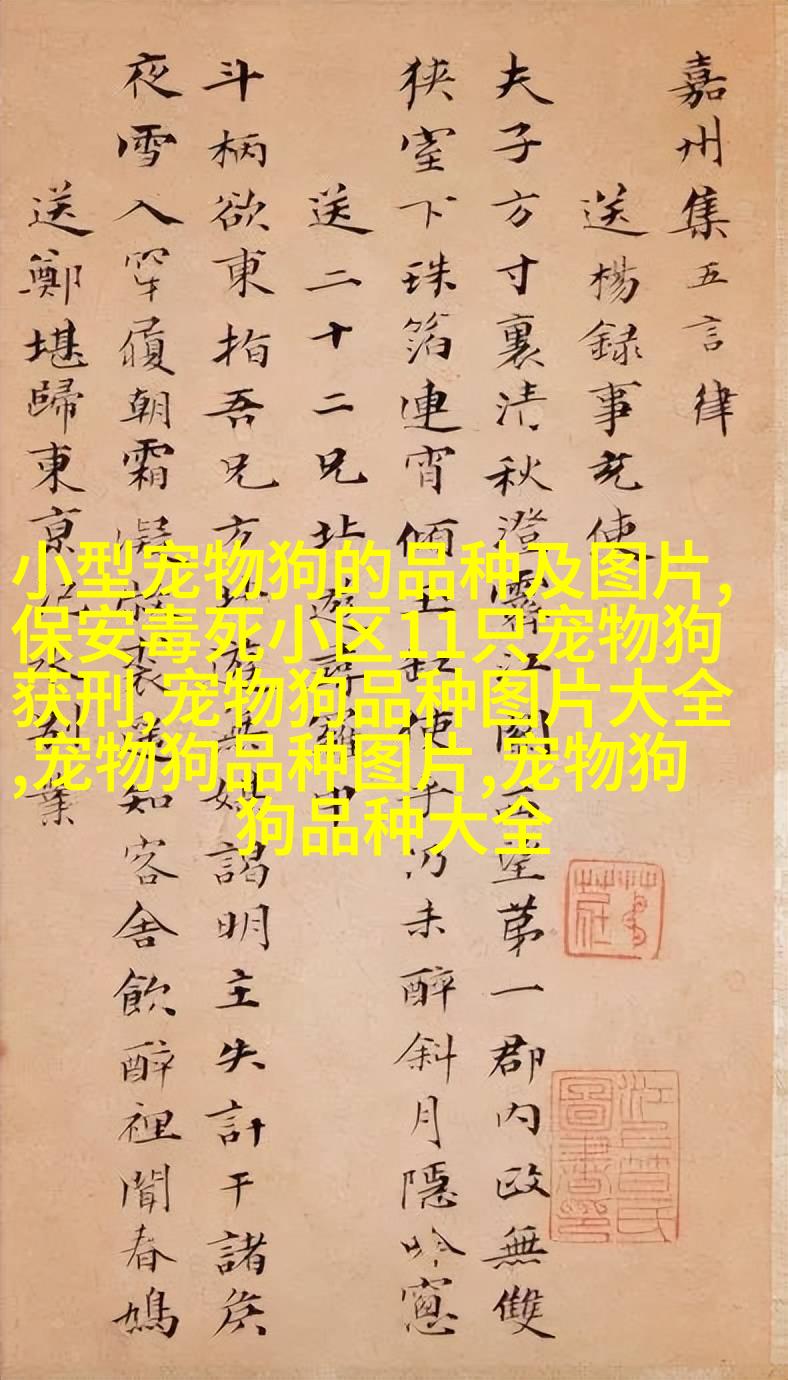 嘉州集五言律
送楊録事充使
夫子方寸裏清秋澄霽江關西望第一郡内政無雙
狹室下珠箔連宵傾玉缸使乎仍未醉斜月隱吟窻
送二十二兄北遊尋羅中
斗柄欲東指吾兄方北遊無媒謁明主失計干諸侯
夜雪入穿履朝霜凝敝裘遥知客舍飲醉裡聞春鳩
送鄭堪歸東京氾水別業
小型宠物狗的品种及图片,
保安毒死小区11只宠物狗
获刑,宠物狗品种图片大全
,宠物狗品种图片,宠物狗
狗品种大全